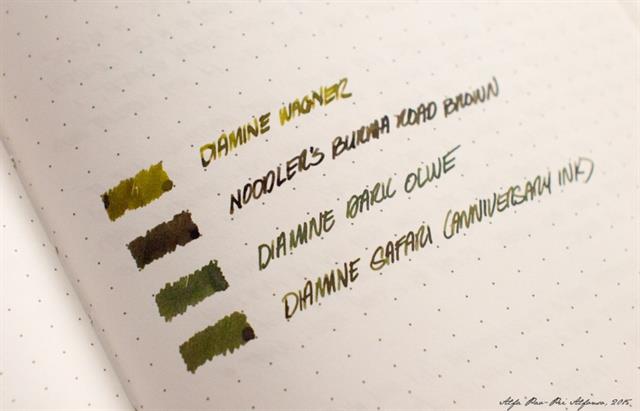 DIAMINE WAGNER
NOODLER'S BURMA ROAD BROWN
DIAMINE DARK OLIVE
DIAMINE SAFARI (ANNIVERSARY INK)
2015.